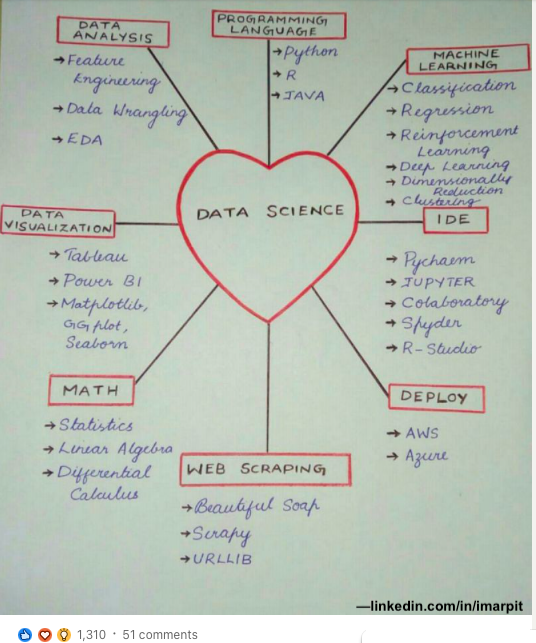 DATA
ANALYSIS
→ Feature
Engineering
→ Data Wrangling
→ EDA
PROGRAMMING
LANGUAGE
→ Python
→ R
→ JAVA
MACHINE
LEARNING
→ Classification
→ Regression
→ Reinforcement
Learning
→ Deep Learning
→ Dimensionally
Reduction
→ Clustering
DATA SCIENCE
DATA
VISUALIZATION
→ Tableau
→ Power BI
→ Matplotlib,
GG plot,
Seaborn
IDE
→ Pychaem
→ JUPYTER
→ Colaboratory
→ Spyder
→ R-Studio
MATH
→ Statistics
→ Linear Algebra
→ Differential
Calculus
WEB SCRAPING
→ Beautiful Soap
→ Scrapy
→ URLLIB
DEPLOY
→ AWS
→ Azure
—linkedin.com/in/imarpit
1,310 · 51 comments